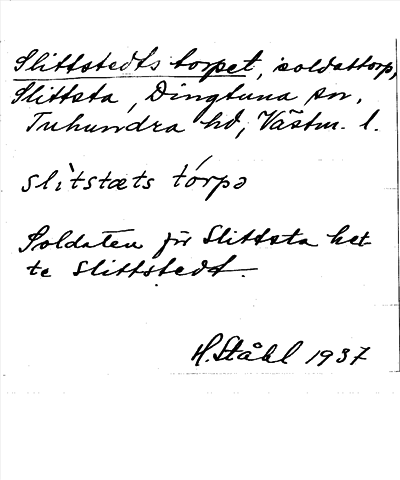 Slittstedts torpet, soldattorp,
Slittsta, Dingtuna sn,
Tuhundra hd, Västm. l.
slìtstæts tórpə
Soldaten för Slittsta het
te Slittstedt.
H. Ståhl 1937